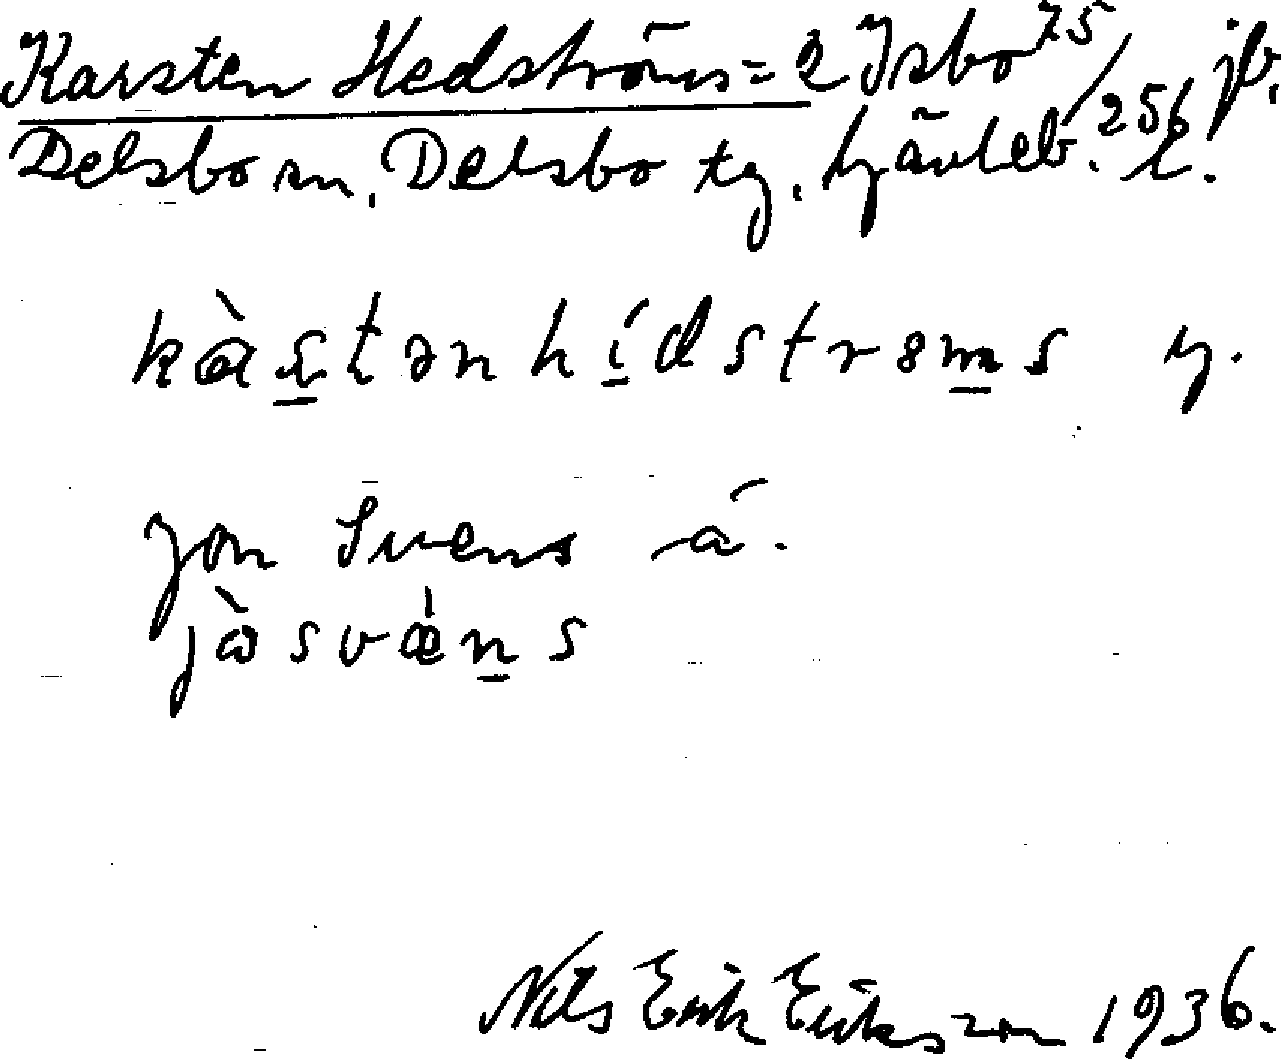 Karsten Hedströms = 2 Isbo 75/256 jb.
Delsbo sn, Delsbo tg, Gävleb. l.
kàstənhídstrøms y.
Jon Svens á.
jòsvæ̀ns
Nils Erik Eriksson 1936.